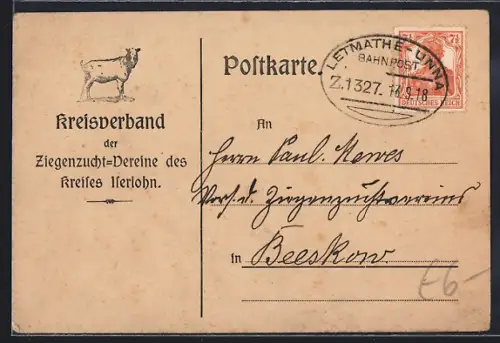 Kreisverband
der
Ziegenzucht=Vereine des
Kreises Iserlohn.
Postkarte.
LETMATHE-UNNA
BAHNPOST
Z.1327. 14.9.18
7½ 7½
DEUTSCHES REICH
An
Herrn Paul. Mewes
Vors. d. Ziegenzuchtvereins
in Beeskow.
€6-